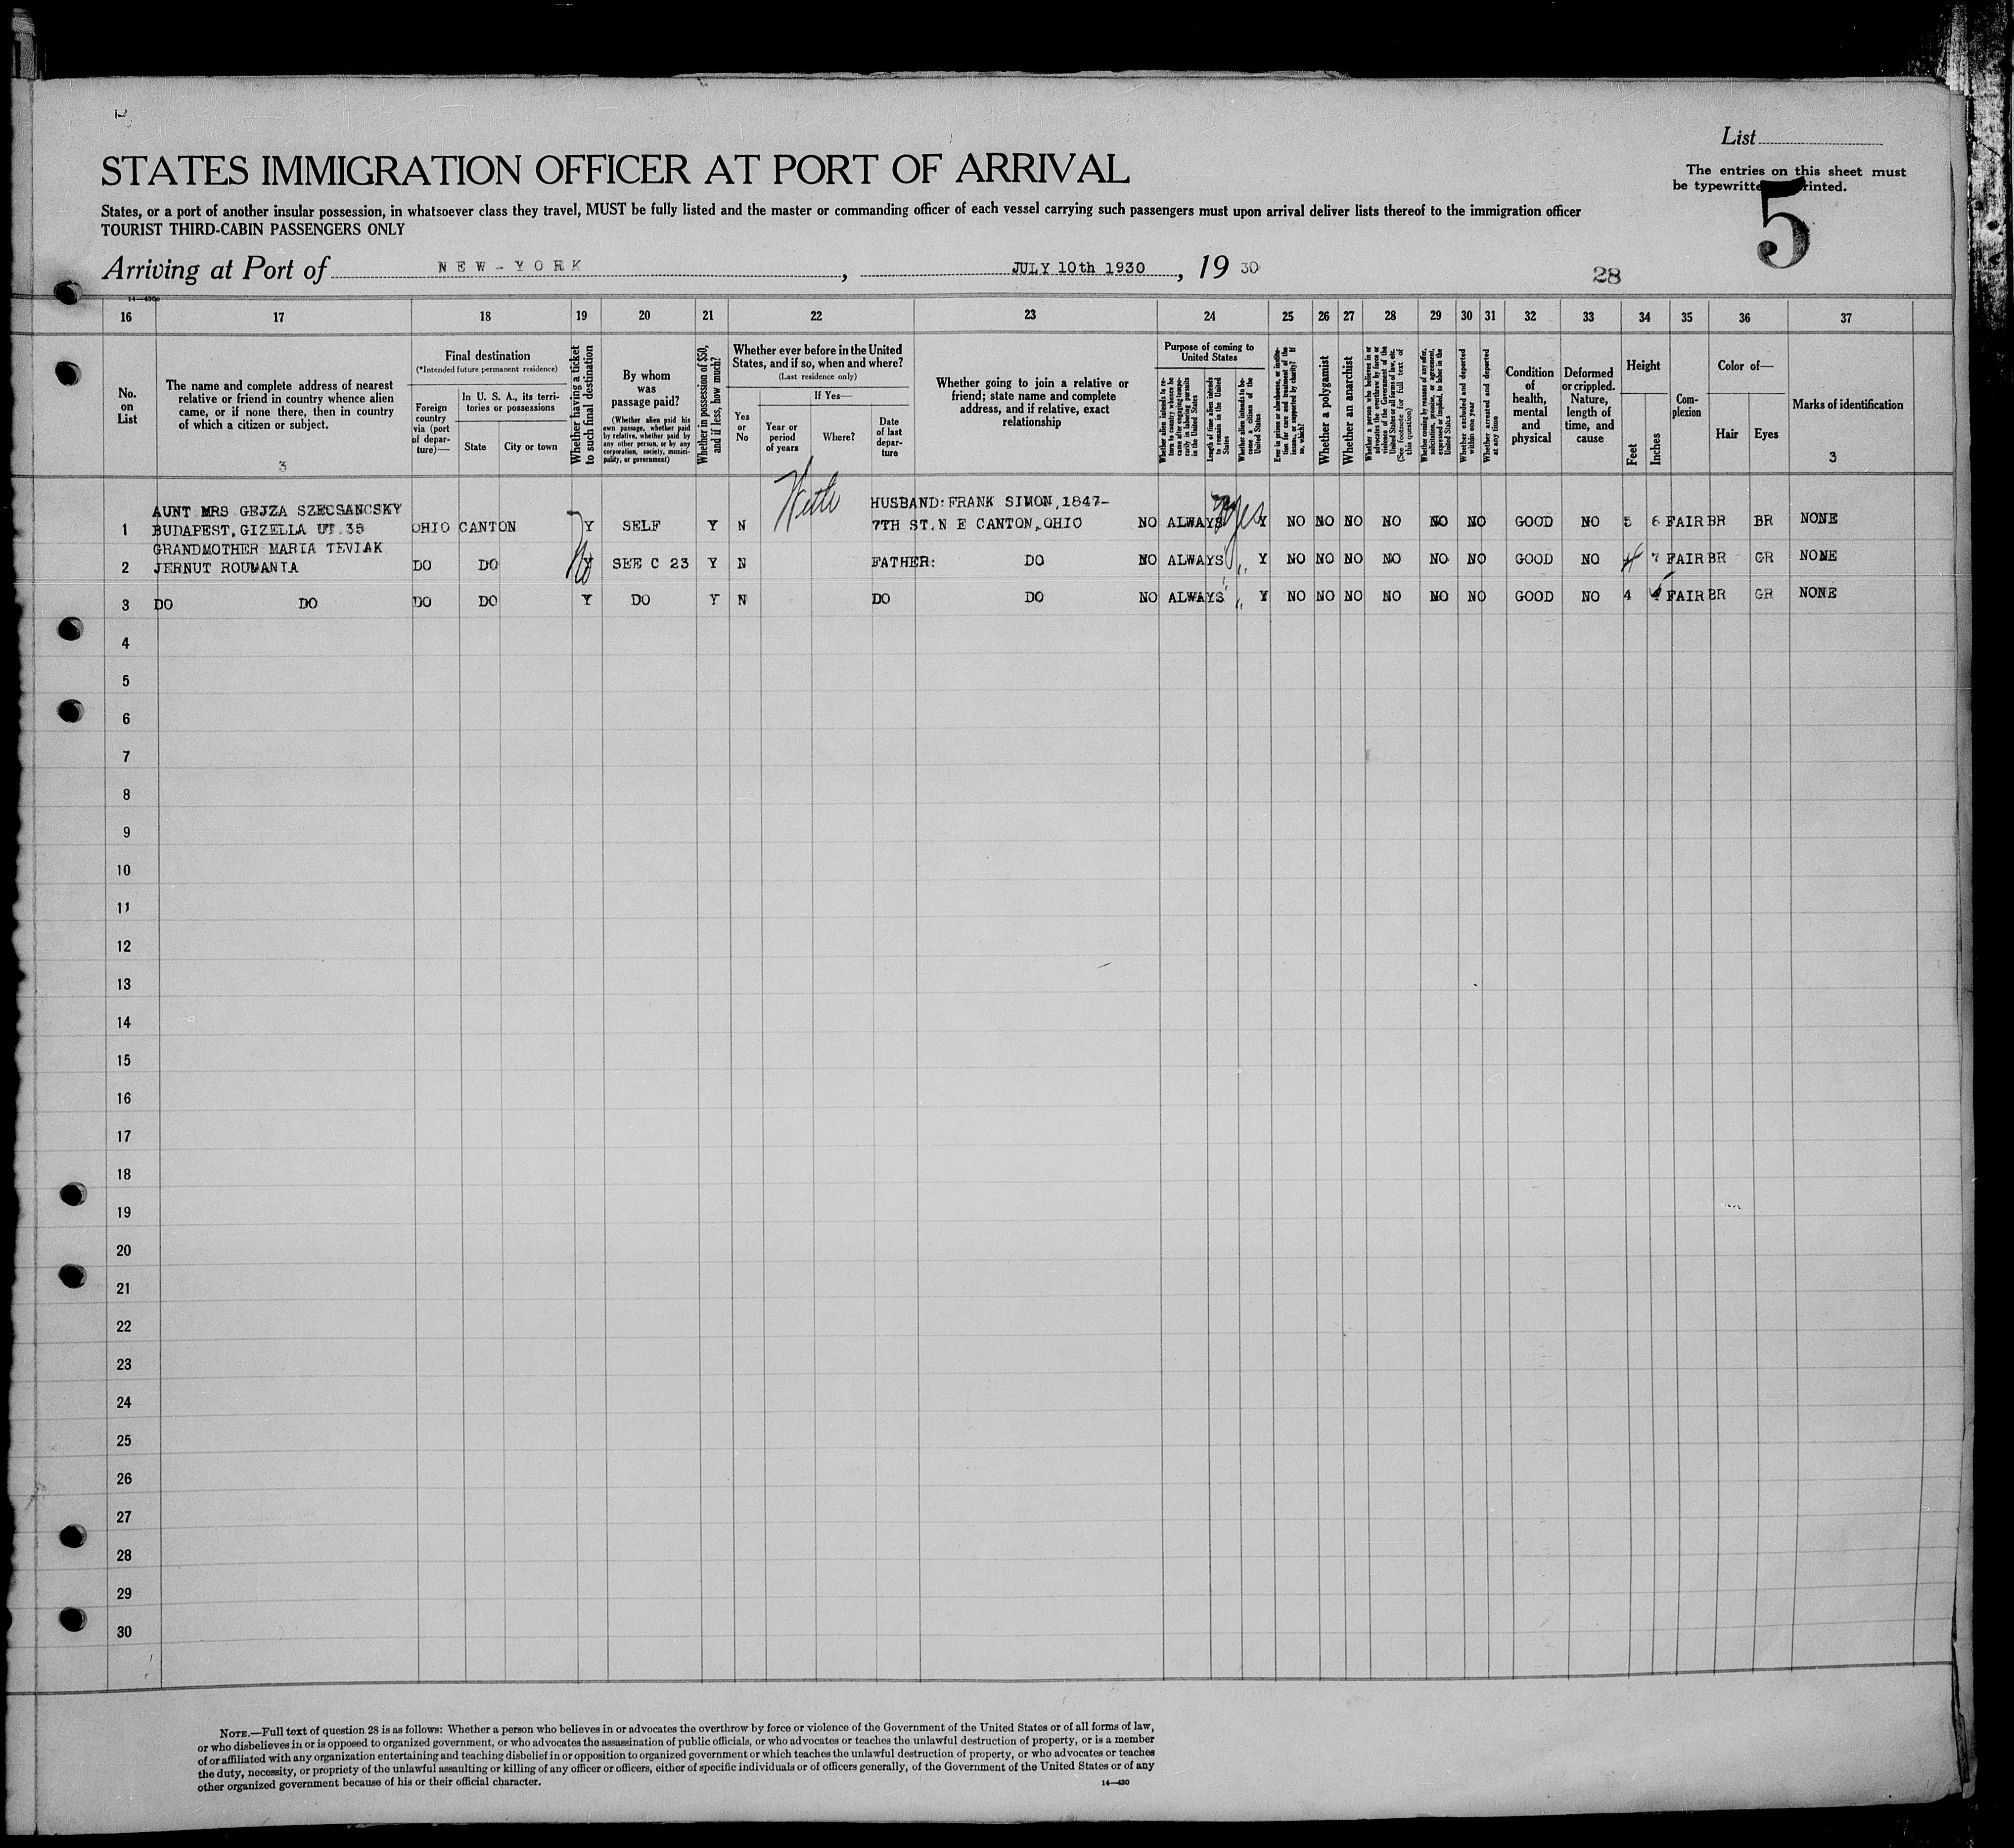 List
The entries on this sheet must
be typewritten or printed.
5
STATES IMMIGRATION OFFICER AT PORT OF ARRIVAL
States, or a port of another insular possession, in whatsoever class they travel, MUST be fully listed and the master or commanding officer of each vessel carrying such passengers must upon arrival deliver lists thereof to the immigration officer
TOURIST THIRD-CABIN PASSENGERS ONLY
Arriving at Port of NEW-YORK, JULY 10th 1930, 19 30
28
16 17 18 19 20 21 22 23 24 25 26 27 28 29 30 31 32 33 34 35 36 37
No. on List
The name and complete address of nearest
relative or friend in country whence alien
came, or if none there, then in country
of which a citizen or subject.
3
Final destination
(*Intended future permanent residence)
Foreign country via (port of departure)—
In U. S. A., its territories or possessions
State
City or town
Whether having a ticket to such final destination
By whom was passage paid?
(Whether alien paid his own passage, whether paid by relative, whether paid by any other person, or by any corporation, society, municipality, or government)
Whether in possession of $50, and if less, how much?
Whether ever before in the United States, and if so, when and where?
(Last residence only)
Yes or No
If Yes—
Year or period of years
Where?
Date of last departure
Whether going to join a relative or
friend; state name and complete
address, and if relative, exact
relationship
Purpose of coming to United States
Whether alien intends to return to country whence he came after engaging temporarily in laboring pursuits in the United States
Length of time alien intends to remain in the United States
Whether alien intends to become a citizen of the United States
Ever in prison or almshouse, or institution for care and treatment of the insane, or supported by charity? If so, which?
Whether a polygamist
Whether an anarchist
Whether a person who believes in or advocates the overthrow by force or violence of the Government of the United States or all forms of law, etc. (See footnote for full text of this question)
Whether coming by reasons of any offer, solicitation, promise, or agreement, expressed or implied, to labor in the United States
Whether excluded and deported within one year
Whether arrested and deported at any time
Condition of health, mental and physical
Deformed or crippled. Nature, length of time, and cause
Height
Feet
Inches
Complexion
Color of—
Hair
Eyes
Marks of identification
3
AUNT MRS GEJZA SZECSANCSKY HUSBAND: FRANK SIMON, 1847-
1 BUDAPEST, GIZELLA UT. 35 OHIO CANTON Y SELF Y N 7TH ST. N E CANTON, OHIO NO ALWAYS yes Y NO NO NO NO NO NO GOOD NO 5 6 FAIR BR BR NONE
GRANDMOTHER MARIA TEVIAK
2 JERNUT ROUMANIA DO DO No Y SEE C 23 Y N FATHER: DO NO ALWAYS " Y NO NO NO NO NO NO GOOD NO 4 7 FAIR BR GR NONE
3 DO DO DO DO Y DO Y N DO DO NO ALWAYS " Y NO NO NO NO NO NO GOOD NO 4 FAIR BR GR NONE
4
5
6
7
8
9
10
11
12
13
14
15
16
17
18
19
20
21
22
23
24
25
26
27
28
29
30
NOTE.—Full text of question 28 is as follows: Whether a person who believes in or advocates the overthrow by force or violence of the Government of the United States or of all forms of law,
or who disbelieves in or is opposed to organized government, or who advocates the assassination of public officials, or who advocates or teaches the unlawful destruction of property, or is a member
of or affiliated with any organization entertaining and teaching disbelief in or opposition to organized government or which teaches the unlawful destruction of property, or who advocates or teaches
the duty, necessity, or propriety of the unlawful assaulting or killing of any officer or officers, either of specific individuals or of officers generally, of the Government of the United States or of any
other organized government because of his or their official character.
14—430